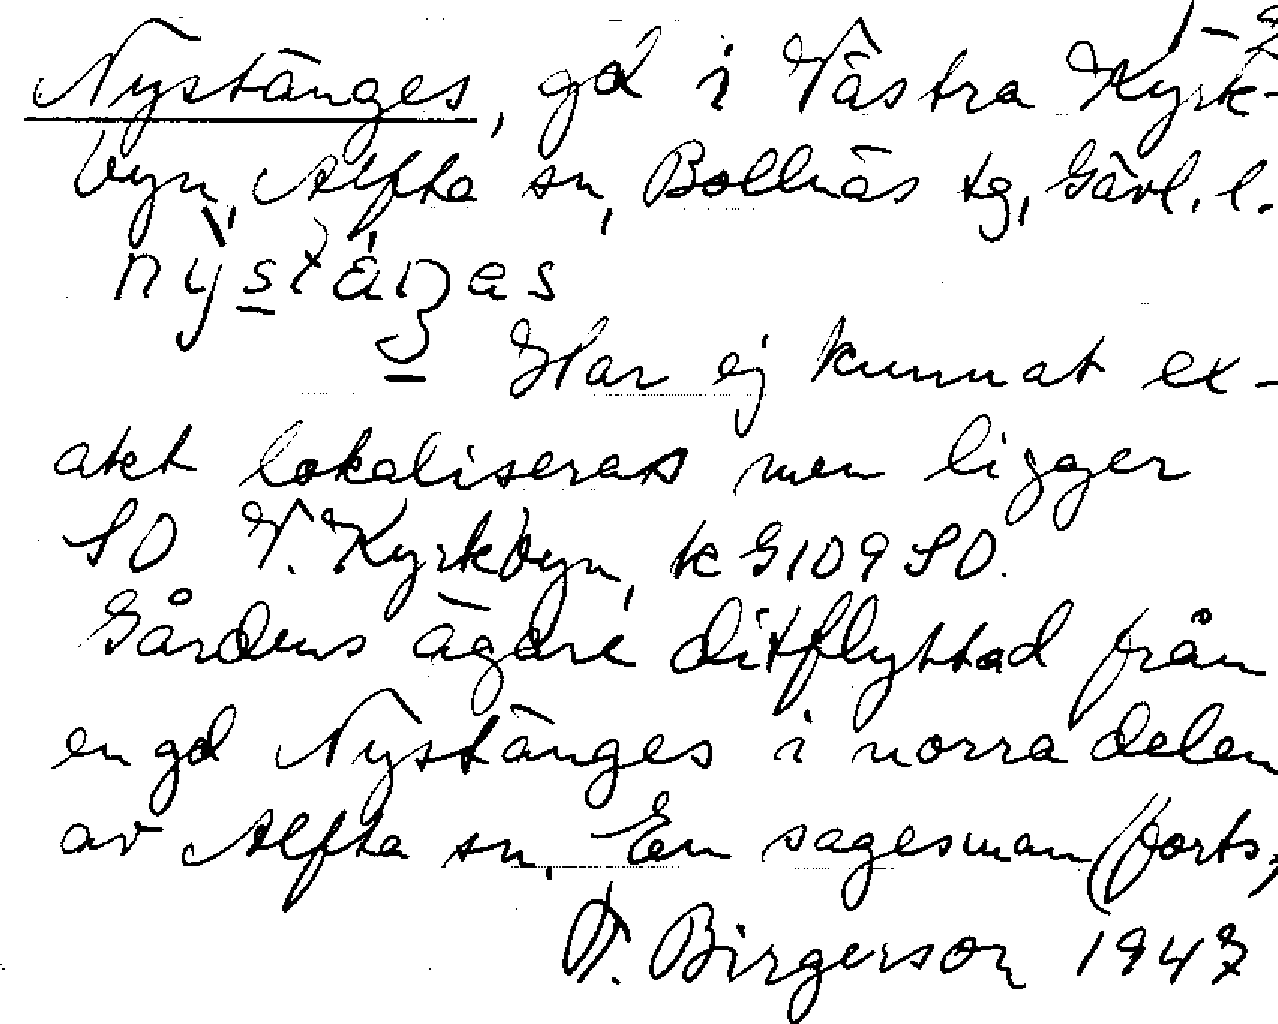 Nystänges, gd i Västra Kyrk-
byn, Alfta sn, Bollnäs tg, Gävl. l.
Har ej kunnat ex-
akt lokaliseras men ligger
SO V. Kyrkbyn, k G109 SO.
Gårdens ägare ditflyttad från
en gd Nystänges i norra delen
av Alfta sn. En sagesman (forts,
Birgerson 1947